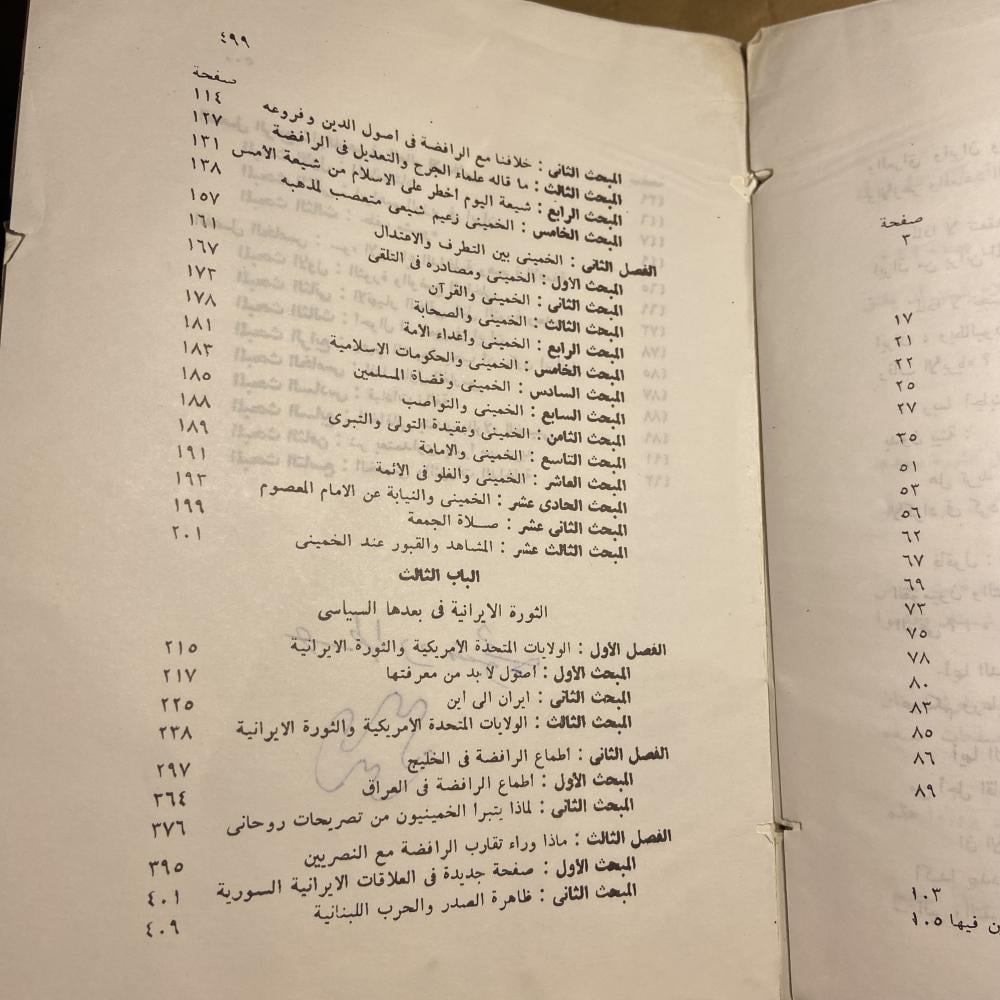 ٤٩٩
صفحة
المبحث الثانى : خلافنا مع الرافضة فى اصول الدين وفروعه ١١٤
المبحث الثالث : ما قاله علماء الجرح والتعديل فى الرافضة ١٢٧
المبحث الرابع : شيعة اليوم أخطر على الاسلام من شيعة الامس ١٣١
المبحث الخامس : الخمينى زعيم شيعى متعصب لمذهبه ١٣٨
الفصل الثانى : الخمينى بين التطرف والاعتدال ١٥٧
المبحث الأول : الخمينى ومصادره فى التلقى ١٦١
المبحث الثانى : الخمينى والقرآن ١٦٧
المبحث الثالث : الخمينى والصحابة ١٧٣
المبحث الرابع : الخمينى وأعداء الأمة ١٧٨
المبحث الخامس : الخمينى والحكومات الاسلامية ١٨١
المبحث السادس : الخمينى وقضاة المسلمين ١٨٣
المبحث السابع : الخمينى والنواصب ١٨٥
المبحث الثامن : الخمينى وعقيدة التولى والتبرى ١٨٨
المبحث التاسع : الخمينى والامامة ١٨٩
المبحث العاشر : الخمينى والغلو فى الأئمة ١٩١
المبحث الحادى عشر : الخمينى والنيابة عن الامام المعصوم ١٩٣
المبحث الثانى عشر : صلاة الجمعة ١٩٩
المبحث الثالث عشر : المشاهد والقبور عند الخمينى ٢٠١
الباب الثالث
الثورة الايرانية فى بعدها السياسى
الفصل الأول : الولايات المتحدة الامريكية والثورة الايرانية ٢١٥
المبحث الأول : أصول لا بد من معرفتها ٢١٧
المبحث الثانى : ايران الى اين ٢٢٥
المبحث الثالث : الولايات المتحدة الامريكية والثورة الايرانية ٢٣٨
الفصل الثانى : اطماع الرافضة فى الخليج ٢٩٧
المبحث الأول : اطماع الرافضة فى العراق ٣٦٤
المبحث الثانى : لماذا يتبرا الخمينيون من تصريحات روحانى ٣٧٦
الفصل الثالث : ماذا وراء تقارب الرافضة مع النصريين ٣٩٥
المبحث الأول : صفحة جديدة فى العلاقات الايرانية السورية ٤٠١
المبحث الثانى : ظاهرة الصدر والحرب اللبنانية ٤٠٩
صفحة
٣
١٧
٢١
٢٢
٢٥
٢٧
٣٥
٥١
٥٣
٥٦
٦٢
٦٧
٦٩
٧٣
٧٥
٧٨
٨٠
٨٣
٨٥
٨٦
٨٩
١٠٣
ن فيها ١٠٥